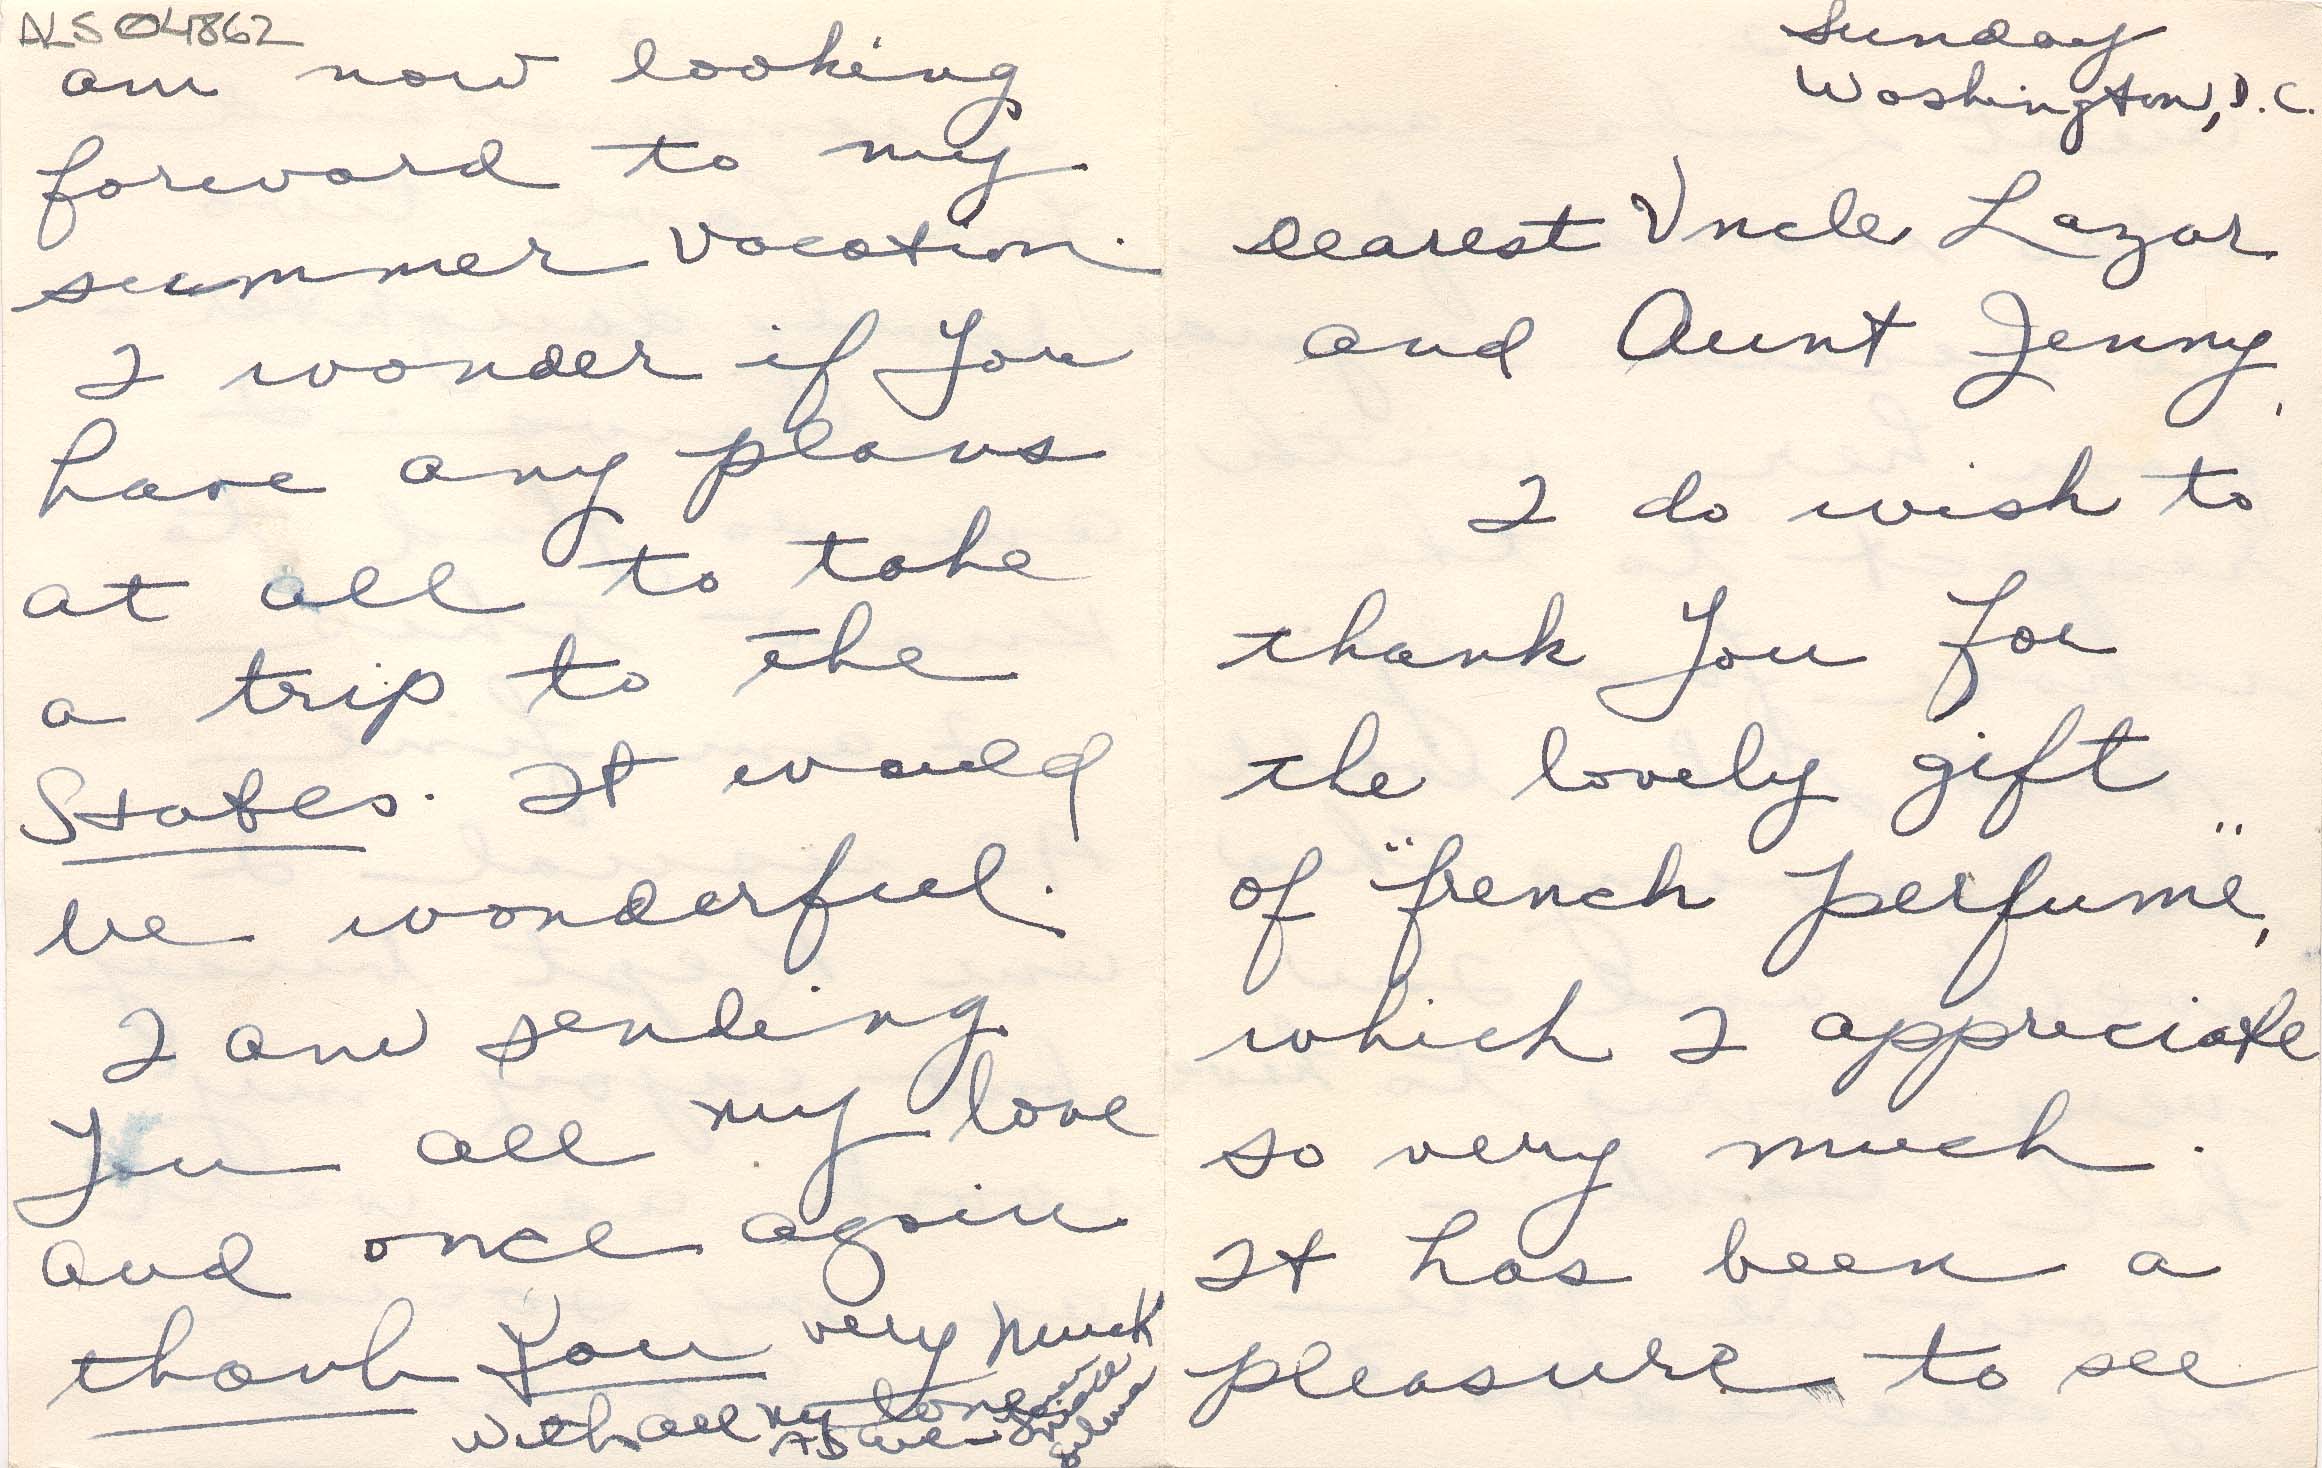 Sunday
Washington, D.C.
Dearest Uncle Lazar
and Aunt Jenny,
I do wish to
thank You for
the lovely gift
of "french perfume",
which I appreciate
so very much.
It has been a
pleasure to see
ALS 04862
am now looking
forward to my
summer vacation.
I wonder if You
have any plans
at all to take
a trip to the
States. It would
be wonderful.
I am sending
You all my love
and once again
thank You very much
with all my love